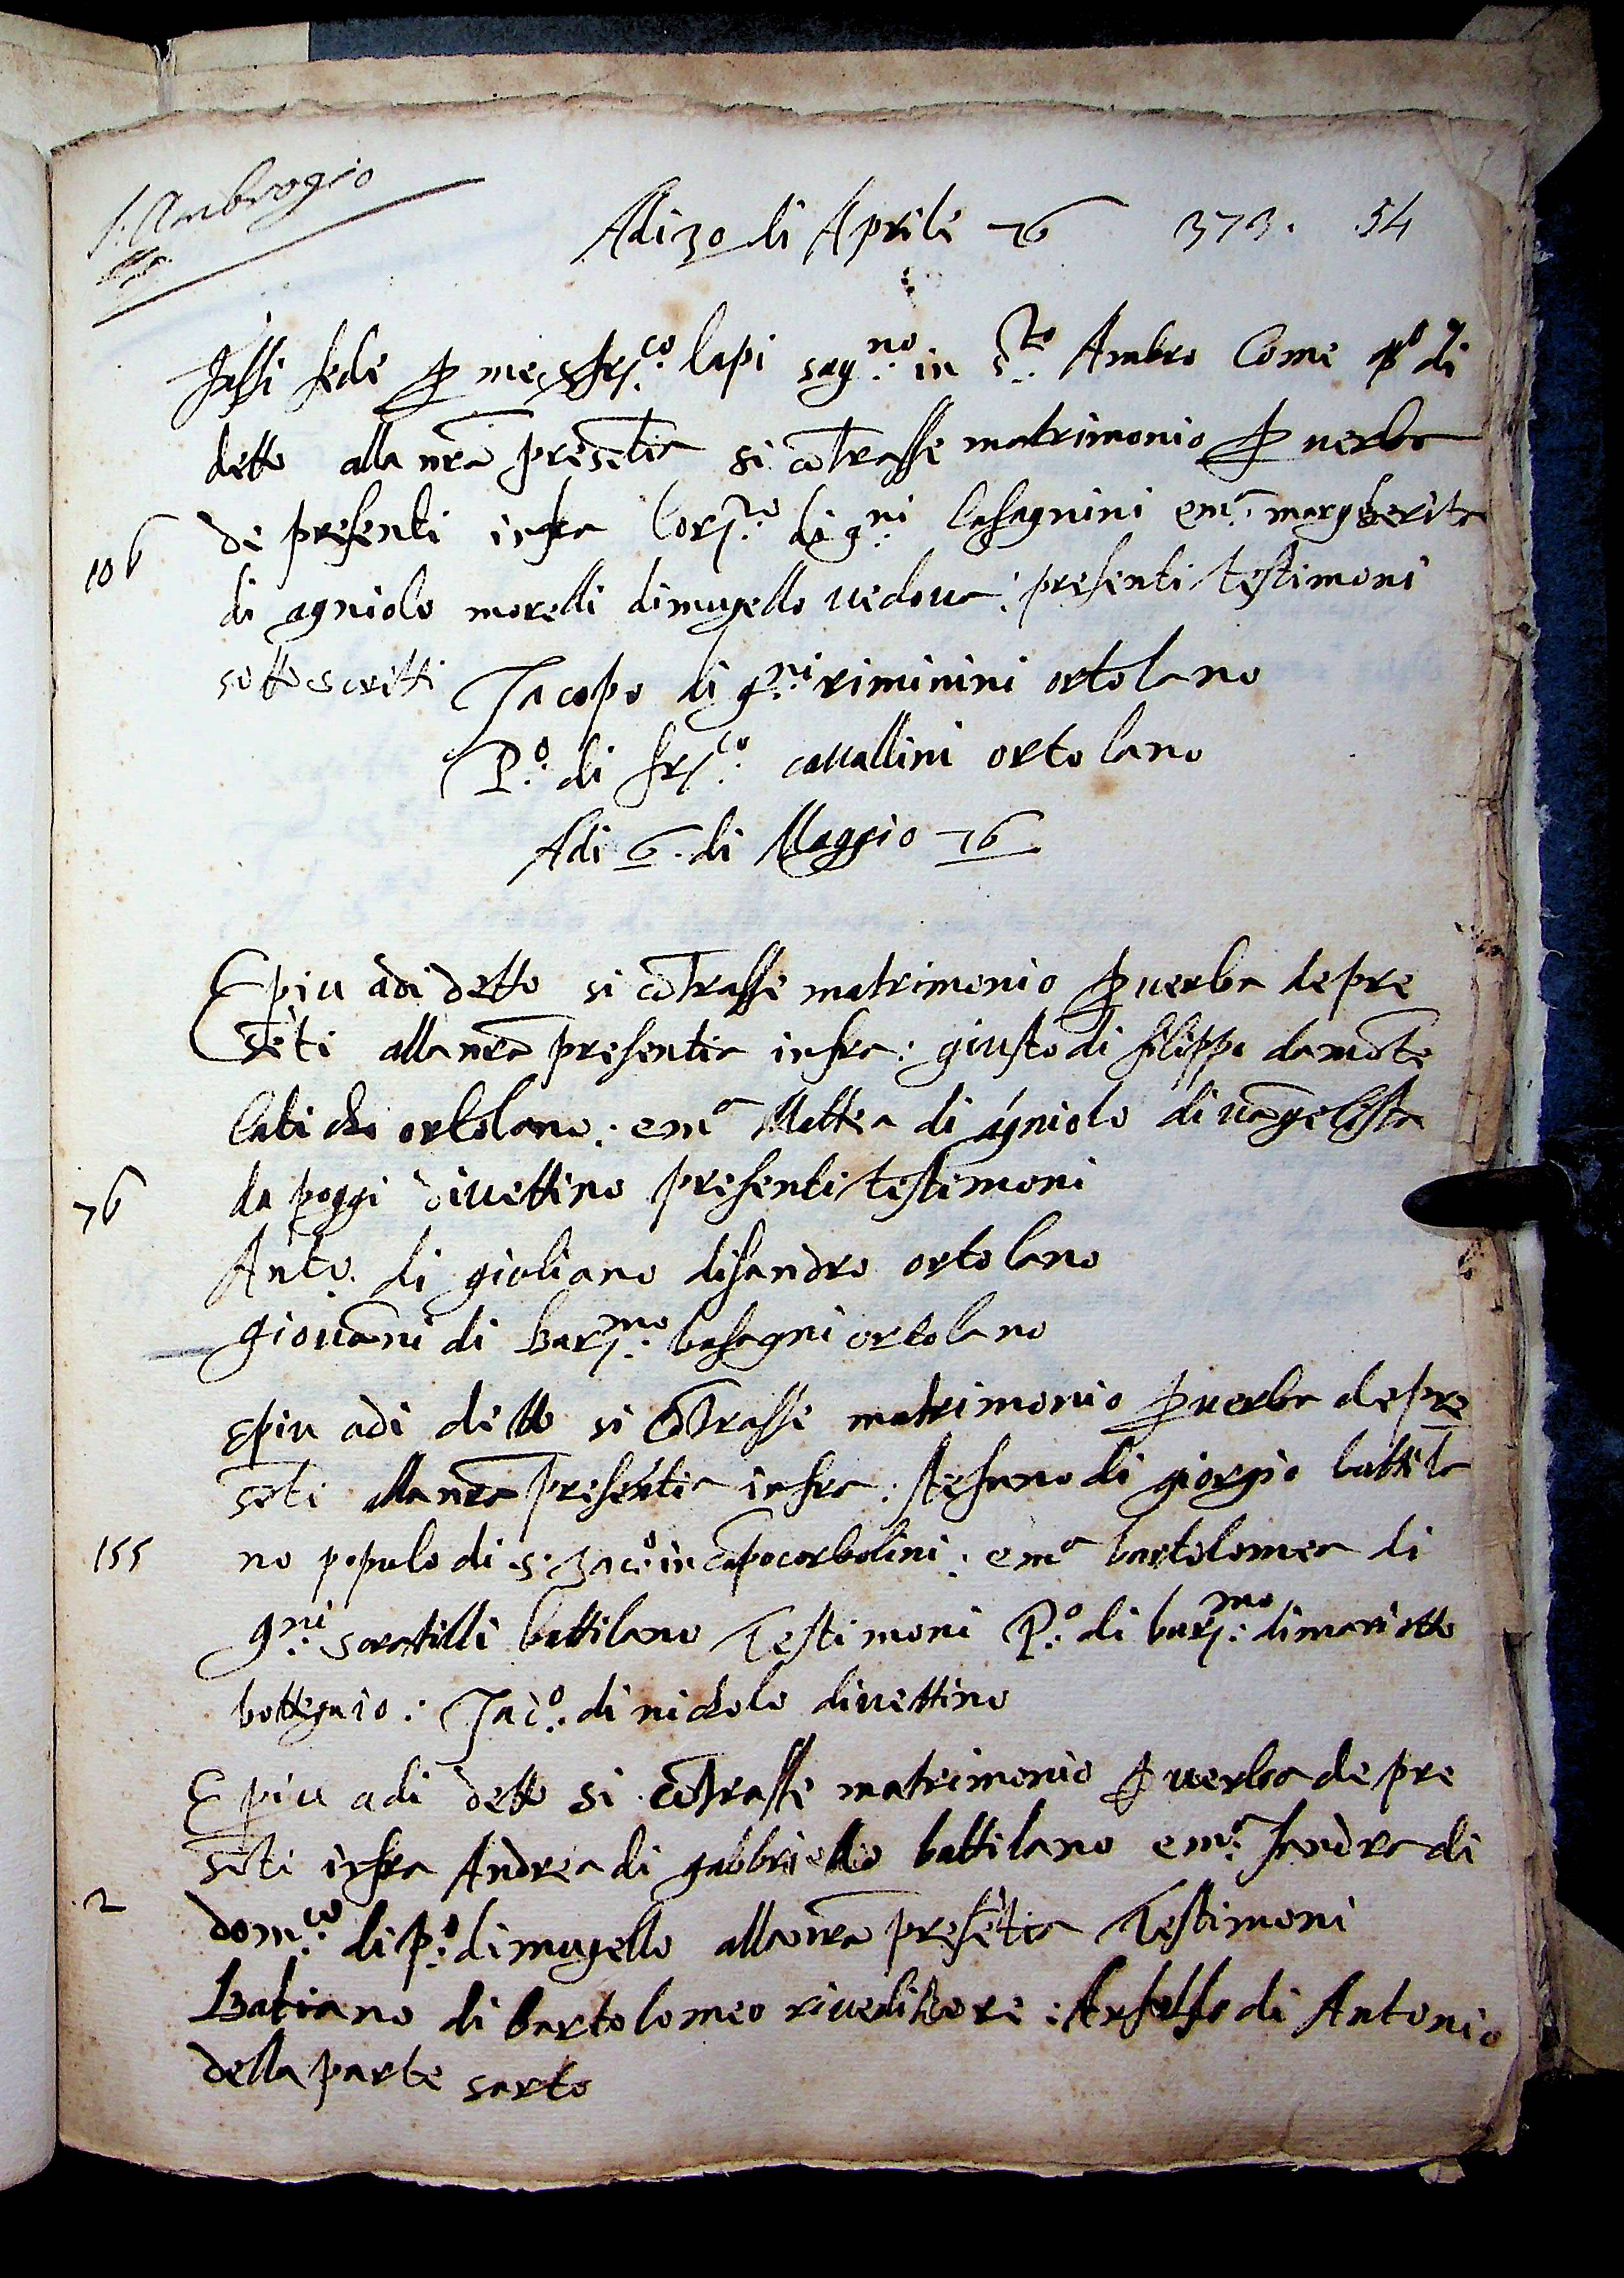 S. Ambrogio
Adi 30 di Aprile 76 373. 54
Fassi fede p me s fr.co lapi sag.no in S.to Ambro Come q.o di
detto alla nrã presẽtia si cõtrasse matrimonio p uerba
de presenti infra lor.zo di g.ni Casagnini e m.a margherita
106
di agniolo morelli di mugello uedoua: presenti testimoni
sottoscritti Jacopo di g.ni riminini ortolano
P.o di fr.co cauallini ortolano
Adi 6. di Maggio 76
E piu adi detto si cõtrasse matrimonio p uerba de pre
sẽti alla nrã presentia infra: giusto di filippo da mõte
catichi ortolano: e m.a Mattea di agniolo di uãgelista
76 da poggi diuettino presenti testimoni
Anto. di giuliano di sandro ortolano
giouãni di bar.mo basagni ortolano
E piu adi ditto si cõtrasse matrimonio p uerba de pre
sẽti alla nrã presẽtia infra: stefano di giorgio battila
155 no populo di s: Jaco in cãpocorbolini: e m.a bartolomea di
g.ni battilano Testimoni P.o di bar.mo di mariotto
bottegaio: Jac.o di nicholo diuettino
E piu adi detto si cõtrasse matrimonio p uerba de pre
sẽti infra Andrea di gabbriello battilano e m.a sandra di
2 dom.co di p.o di mugello alla nrã presẽtia Testimoni
Batiano di bartolomeo riueditore: di Antonio
della parte sarto